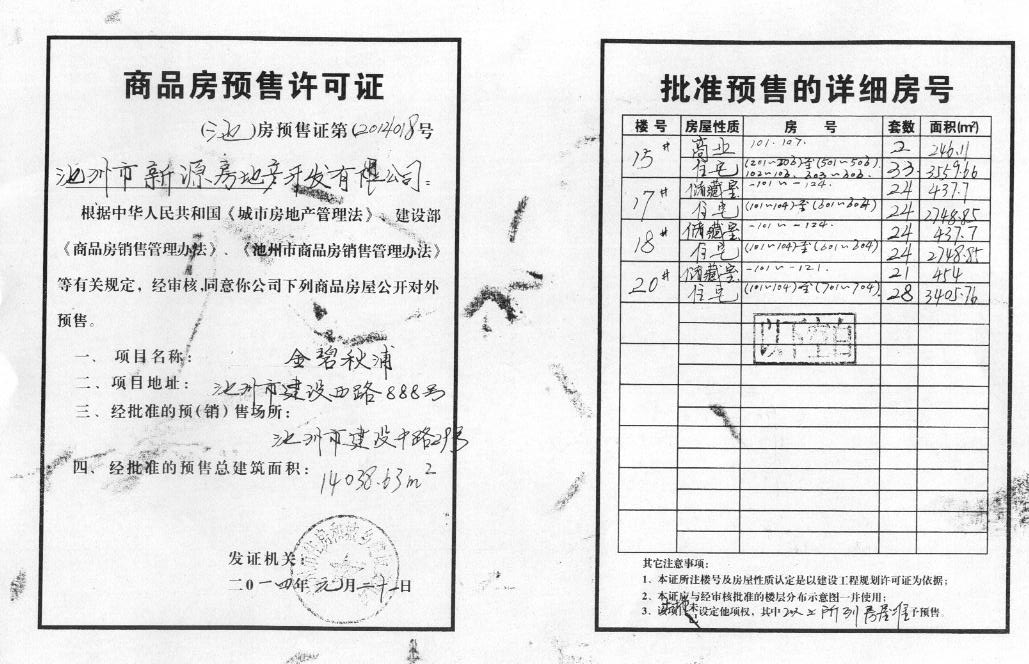 商品房预售许可证
(池)房预售证第(2014018号
池州市新源房地产开发有限公司:
根据中华人民共和国《城市房地产管理法》、建设部
《商品房销售管理办法》、《池州市商品房销售管理办法》
等有关规定，经审核,同意你公司下列商品房屋公开对外
预售。
一、项目名称: 金碧秋浦
二、项目地址: 池州市建设西路888号
三、经批准的预(销)售场所:
池州市建设中路29号
四、经批准的预售总建筑面积: 14038.63m²
发证机关:
二0一四年元月二十二日
批准预售的详细房号
楼号 房屋性质 房号 套数 面积(m²)
15# 商业 101、107. 2 246.11
住宅 (201~206)至(501~506). 102~106、603~606. 33 3559.66
17# 储藏室 -101~-124. 24 437.7
住宅 (101~104)至(601~604) 24 2748.85
18# 储藏室 -101~-124. 24 437.7
住宅 (101~104)至(601~604) 24 2748.85
20# 储藏室 -101~-121. 21 454
住宅 (101~104)至(701~704). 28 3405.76
以下空白
其它注意事项:
1、本证所注楼号及房屋性质认定是以建设工程规划许可证为依据;
2、本证应与经审核批准的楼层分布示意图一并使用;
3、该项目未设定他项权，其中以上所列房屋准予预售。